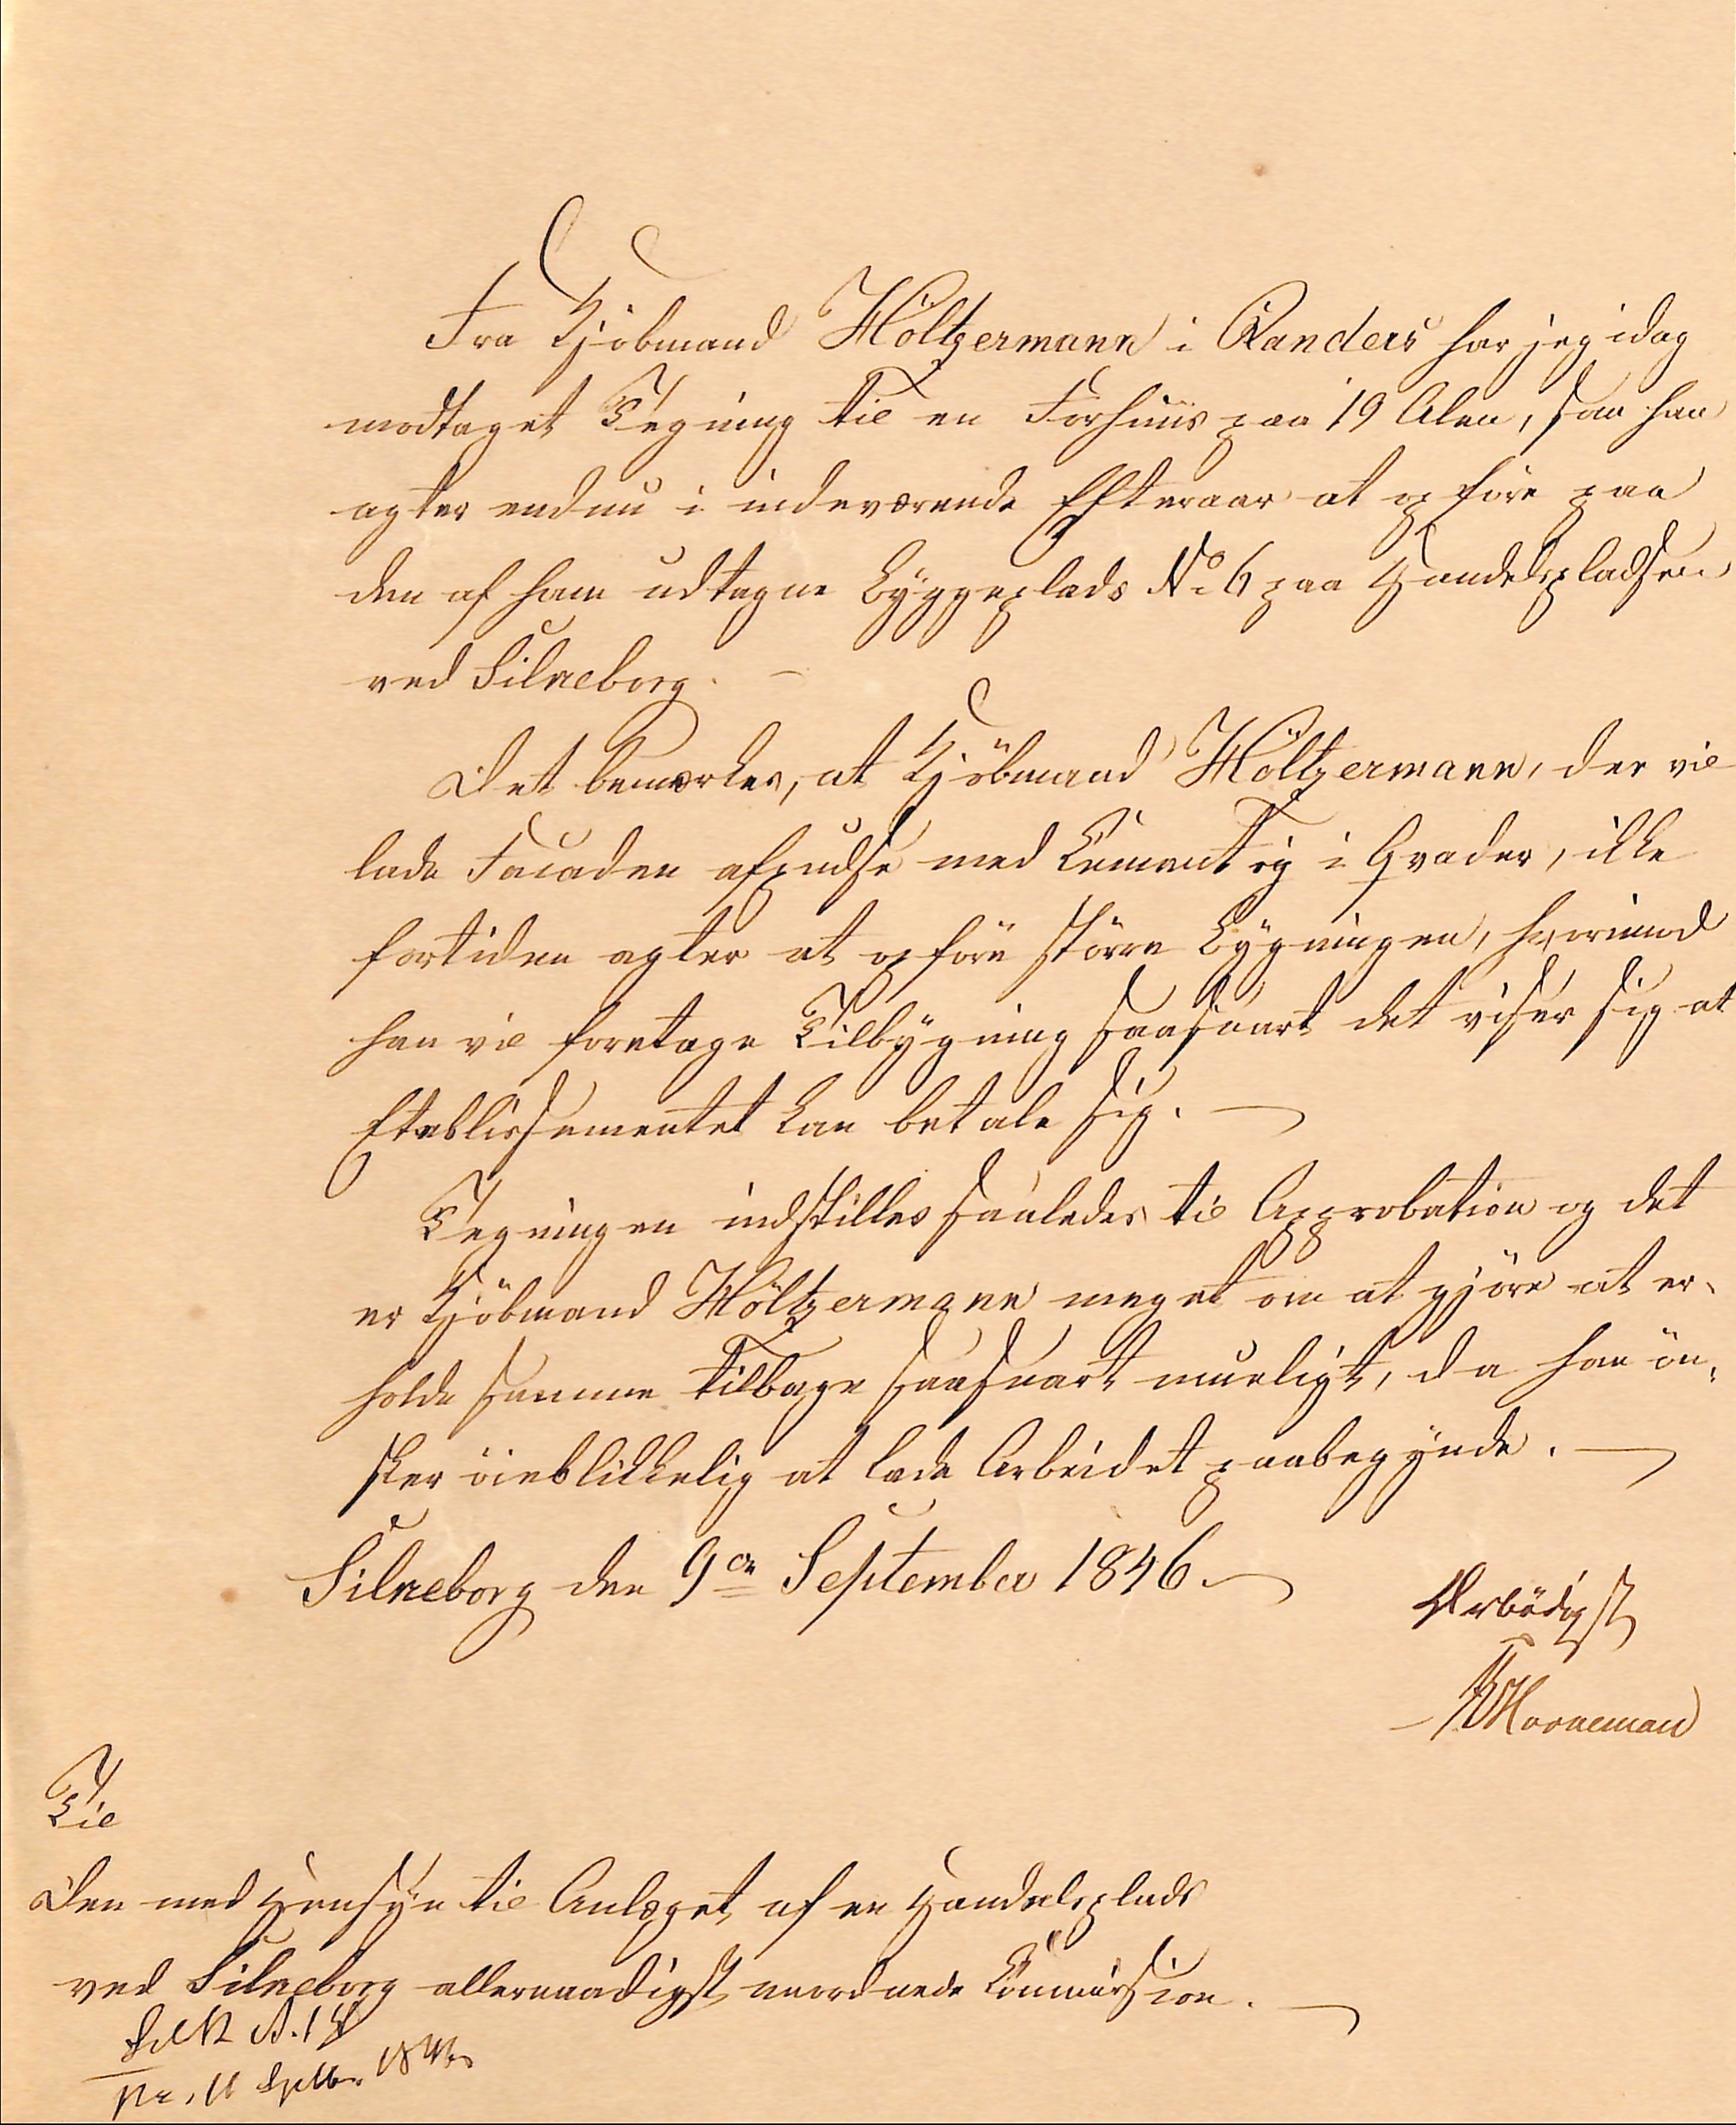 Fra Kjöbmand Höltzermann i Randers har jeg idag
modtaget Tegning til en Forhuus paa 19 Alen, som han
agter endnu i indeværende Efteraar at opföre paa
den af ham udtagne Byggeplads No 6 paa Handelspladsen
ved Silkeborg. —
Det bemærkes, at Kjöbmand Höltzermann, der vil
lade Facaden afpudse med Cement og i Qvader, ikke
fortiden agter at opföre större Bygningen, hvorimod
han vil foretage Tilbygning saasnart det viser sig at
Etablissementet kan betale sig. —
Tegningen indstilles saaledes til Approbation og det
er Kjöbmand Höltzermann meget om at gjöre at er-
holde samme tilbage saasnart mueligt, da han ön-
sker öieblikkelig at lade Arbeidet paabegynde. —
Silkeborg den 9de September 1846. —
Ærbödigst
Hoorneman
Til
Den med Hensyn til Anlæget af en Handelsplads
ved Silkeborg allernaadigst anordnede Commission. —
Silk A. 14
Pr. 11 Septbr. 1846